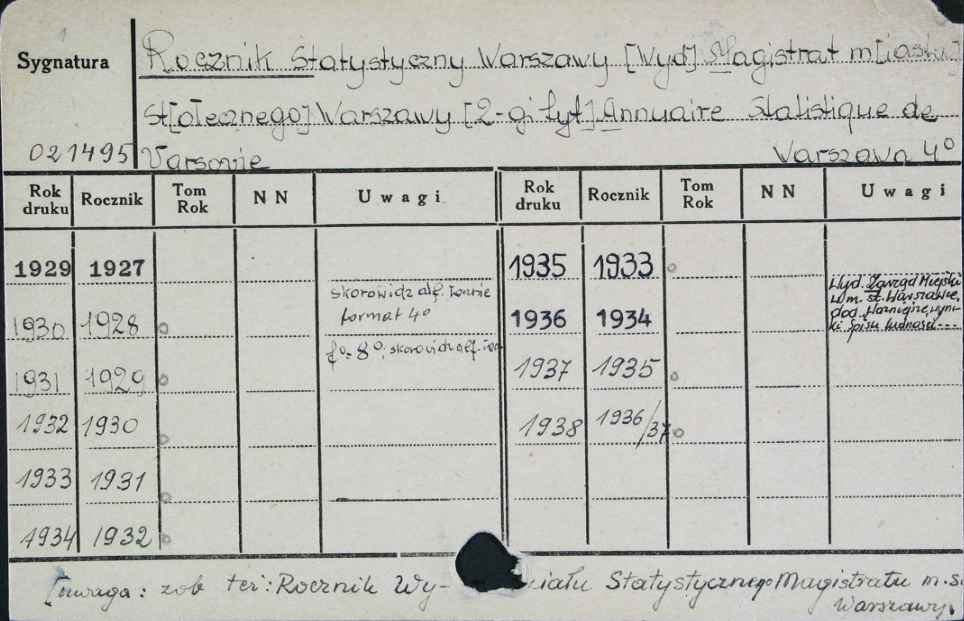 Sygnatura
Rocznik Statystyczny Warszawy [Wyd] Magistrat m[iasta]
st[ołecznego] Warszawy [2-gi tyt] Annuaire Statistique de
021495 Varsovie Warszawa 4°
Rok druku Rocznik Tom Rok N N Uwagi Rok druku Rocznik Tom Rok N N Uwagi
1929 1927 1935 1933
1930 1928 skorowidz alf. w tomie format 4° 1936 1934 Wyd. Zarząd Miejski w m. st. Warszawie, dod. Ważniejsze wyniki spisu ludności ---
1931 1929 f°: 8°; skorowidz alf. 1937 1935
1932 1930 1938 1936/37
1933 1931
1934 1932
[uwaga: zob też: Rocznik Wy- iału Statystycznego Magistratu m. s.
Warszawy.